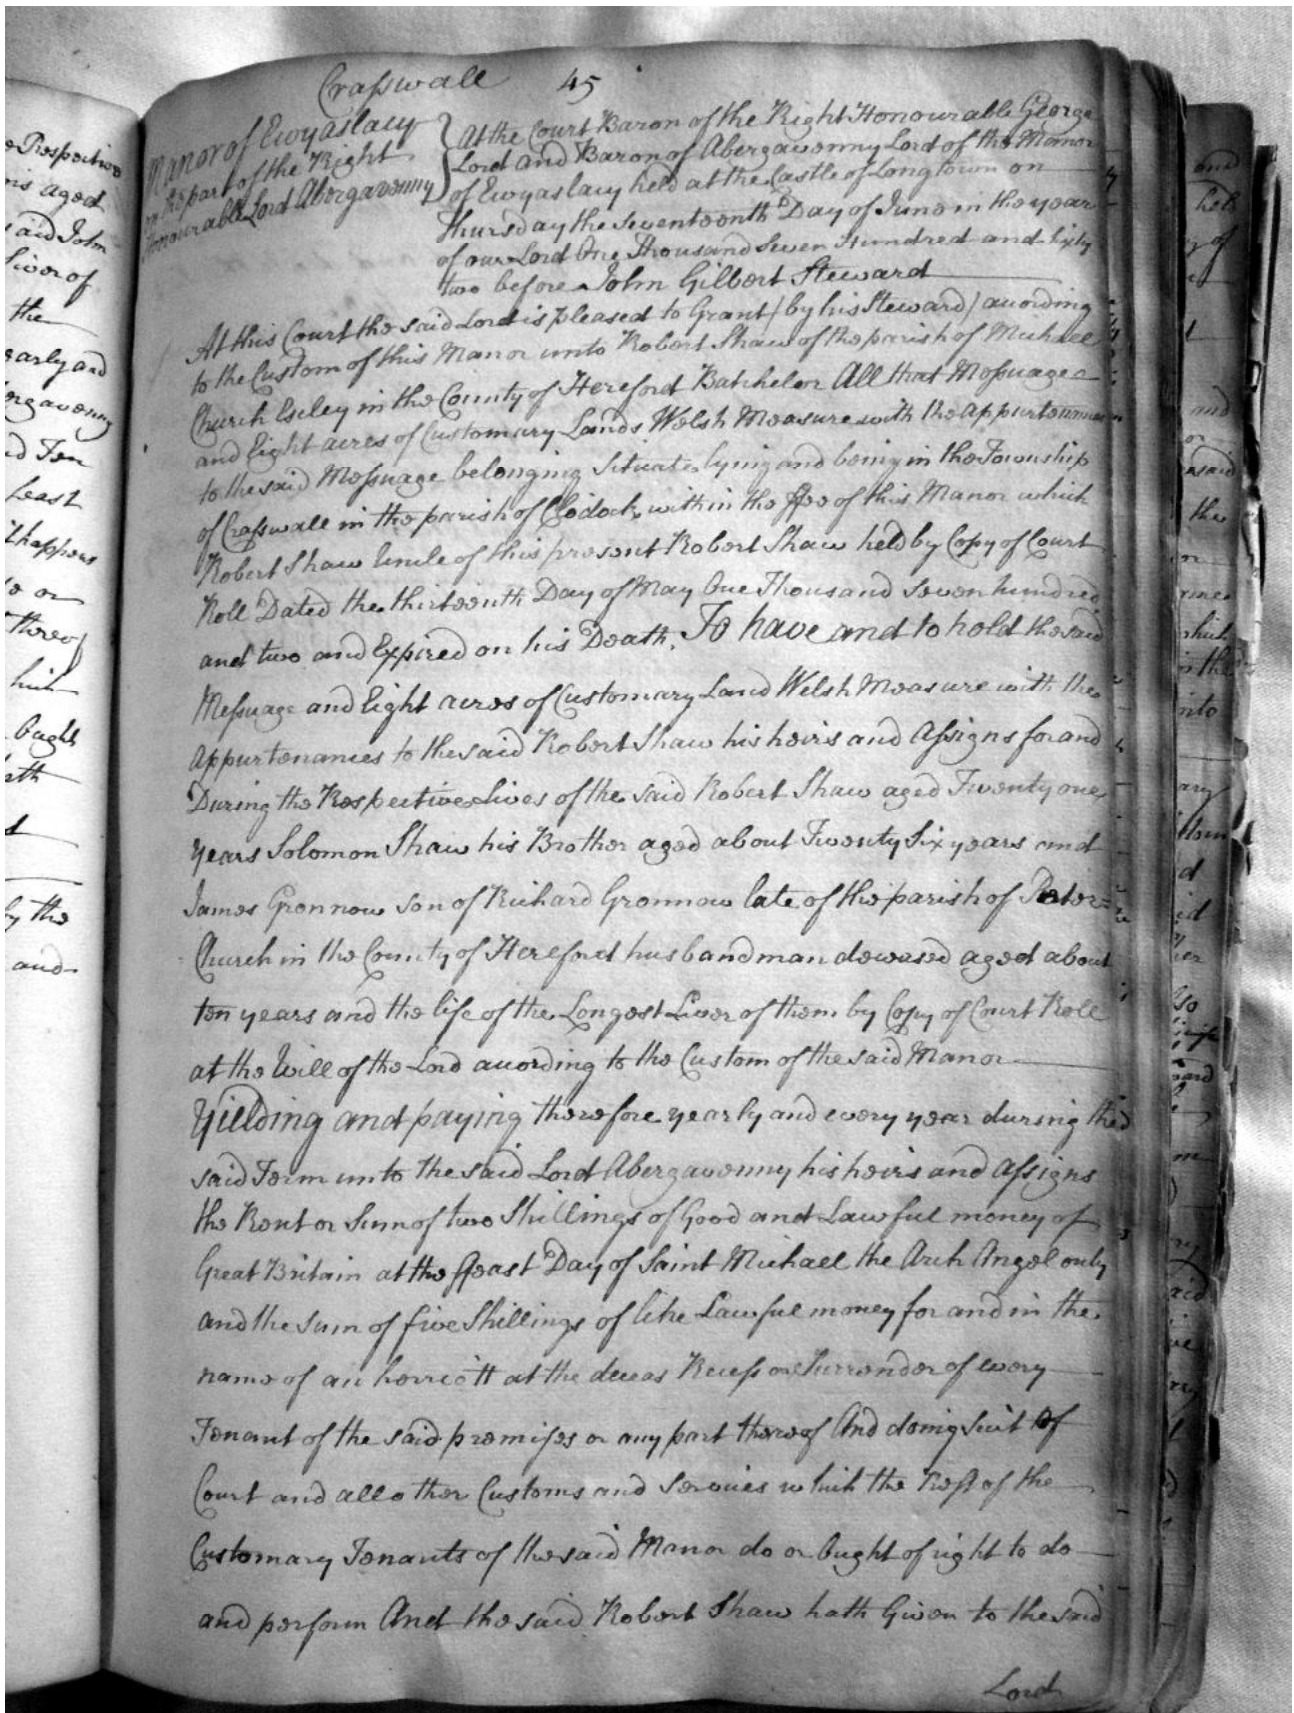 Crasswall 45
Manor of Ewyaslacy
on the part of the Right
Honourable Lord Abergavenny
At the Court Baron of the Right Honourable George
Lord and Baron of Abergavenny Lord of the Manor
of Ewyaslacy held at the Castle of Longtown on
Thursday the Seventeenth Day of June in the year
of our Lord One Thousand Seven Hundred and Sixty
two before John Gilbert Steward
At this Court the said Lord is pleased to Grant (by his Steward) according
to the Custom of this Manor unto Robert Shaw of the parish of Michael
Church Escley in the County of Hereford Batchelor All that Messuage
and Eight acres of Customary Lands Welsh Measure with the appurtenances
to the said Messuage belonging Situate lying and being in the Township
of Crasswall in the parish of Clodock within the ffee of this Manor which
Robert Shaw Uncle of this present Robert Shaw held by Copy of Court
Roll Dated the thirteenth Day of May One Thousand Seven hundred
and two and Expired on his Death, To have and to hold the said
Messuage and Eight acres of Customary Land Welsh Measure with the
Appurtenances to the said Robert Shaw his heirs and Assigns for and
During the Respective Lives of the said Robert Shaw aged Twenty one
years Solomon Shaw his Brother aged about Twenty Six years and
James Gronnow son of Richard Gronnow late of the parish of Peter=
Church in the County of Hereford husbandman deceased aged about
ten years and the life of the Longest Liver of them by Copy of Court Roll
at the Will of the Lord according to the Custom of the said Manor
Yielding and paying therefore yearly and every year during the
said Term unto the said Lord Abergavenny his heirs and Assigns
the Rent or Sum of two Shillings of Good and Lawful money of
Great Britain at the ffeast Day of Saint Michael the Arch Angel only
and the Sum of five Shillings of like Lawful money for and in the
name of an herriott at the deceas Recess or Surrender of every
Tenant of the said premises or any part thereof And doing Suit of
Court and all other Customs and Services which the Rest of the
Customary Tenants of the said Manor do or Ought of right to do
and perform And the said Robert Shaw hath Given to the said
Lord